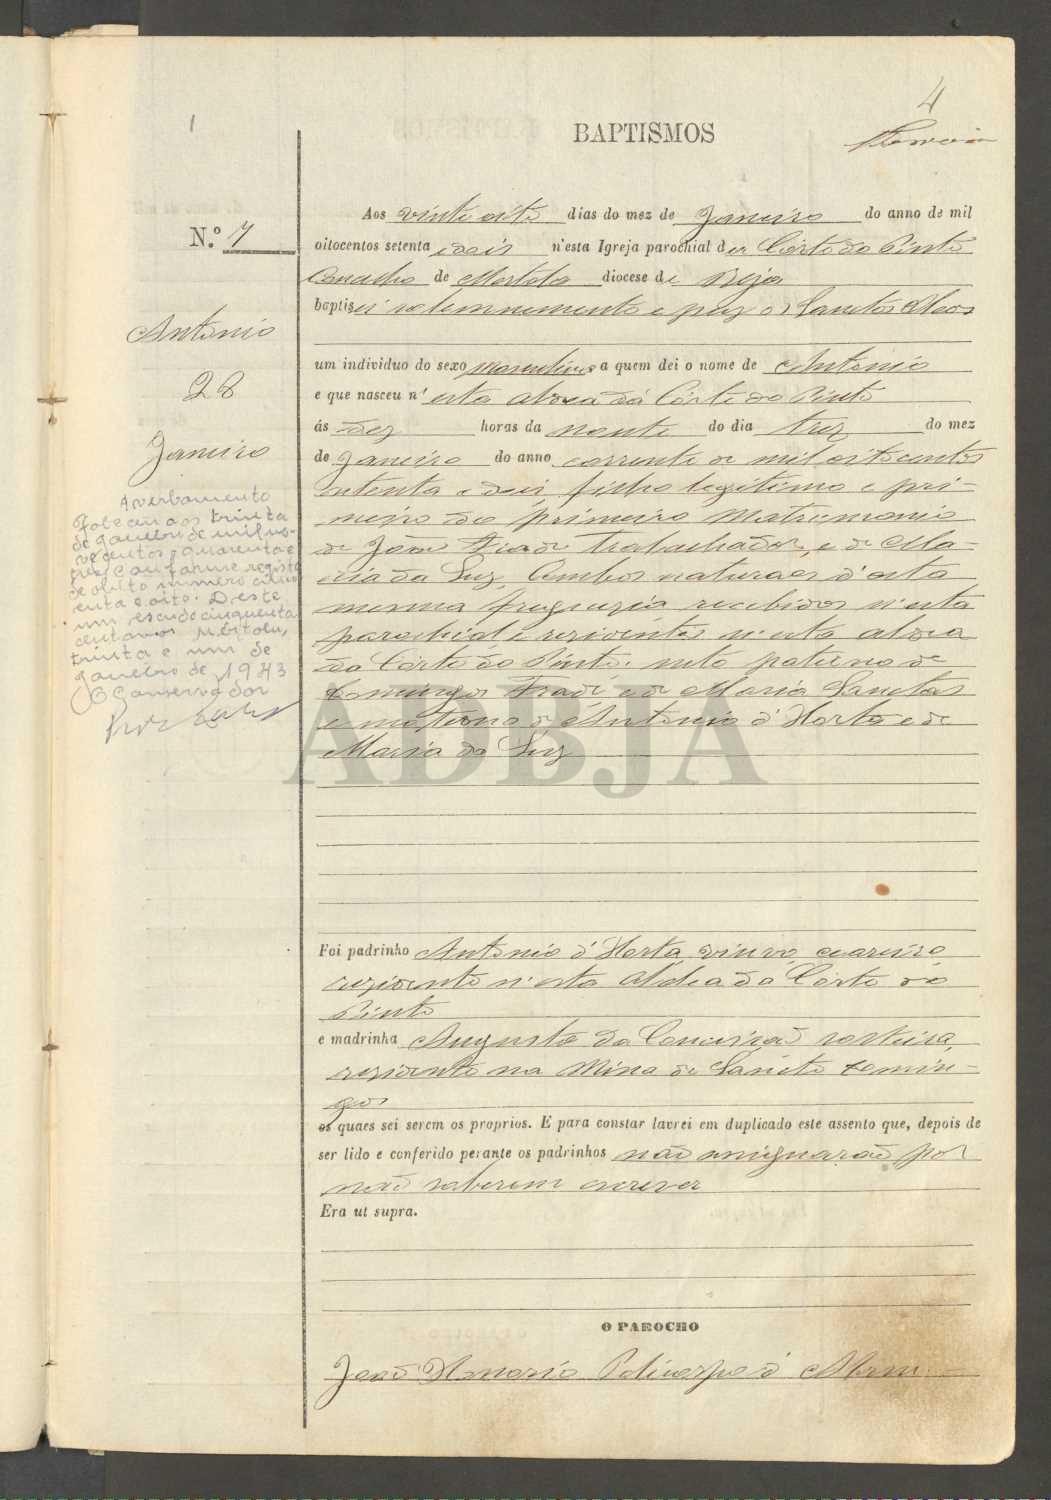 4
1
BAPTISMOS
N.º 7
Antonio
28
Janeiro
Averbamento
Faleceu aos trinta
de janeiro de mil no-
vecentos quarenta e
trez conforme registo
de obito numero cinco
enta e oito. Deste
um escudo cinquenta
centavos. Mértola,
trinta e um de
janeiro de 1943
O Conservador
Aos vinte oito dias do mez de Janeiro do anno de mil
oitocentos setenta e dois n'esta Igreja parochial da Corte do Pinto
Concelho de Mertola diocese de Beja
baptisei solemnemente e puz os Sanctos Oleos
um individuo do sexo masculino a quem dei o nome de Antonio
e que nasceu n'esta aldea da Côrte do Pinto
ás dez horas da noute do dia trez do mez
de Janeiro do anno corrente de mil oitocentos
setenta e dois filho legitimo e pri-
meiro do primeiro matrimonio
de João Frade trabalhador, e de Ma-
ria da Luz, Ambos naturaes d'esta
mesma freguezia recebidos n'esta
parochial e rezidentes n'esta aldea
da Côrte do Pinto. neto paterno de
Domingos Frade e de Maria Sanctas
e materno de Antonio d'Horta e de
Maria da Luz
ADBJA
Foi padrinho Antonio d'Horta, viuvo,
rezidente n'esta Aldea da Côrte do
Pinto
e madrinha Augusta da Conceição solteira,
rezidente na Mina de Sancto Domin-
gos
os quaes sei serem os proprios. E para constar lavrei em duplicado este assento que, depois de
ser lido e conferido perante os padrinhos não assignarão por
não saberem escrever
Era ut supra.
O PAROCHO
João Honorio Policarpo d'